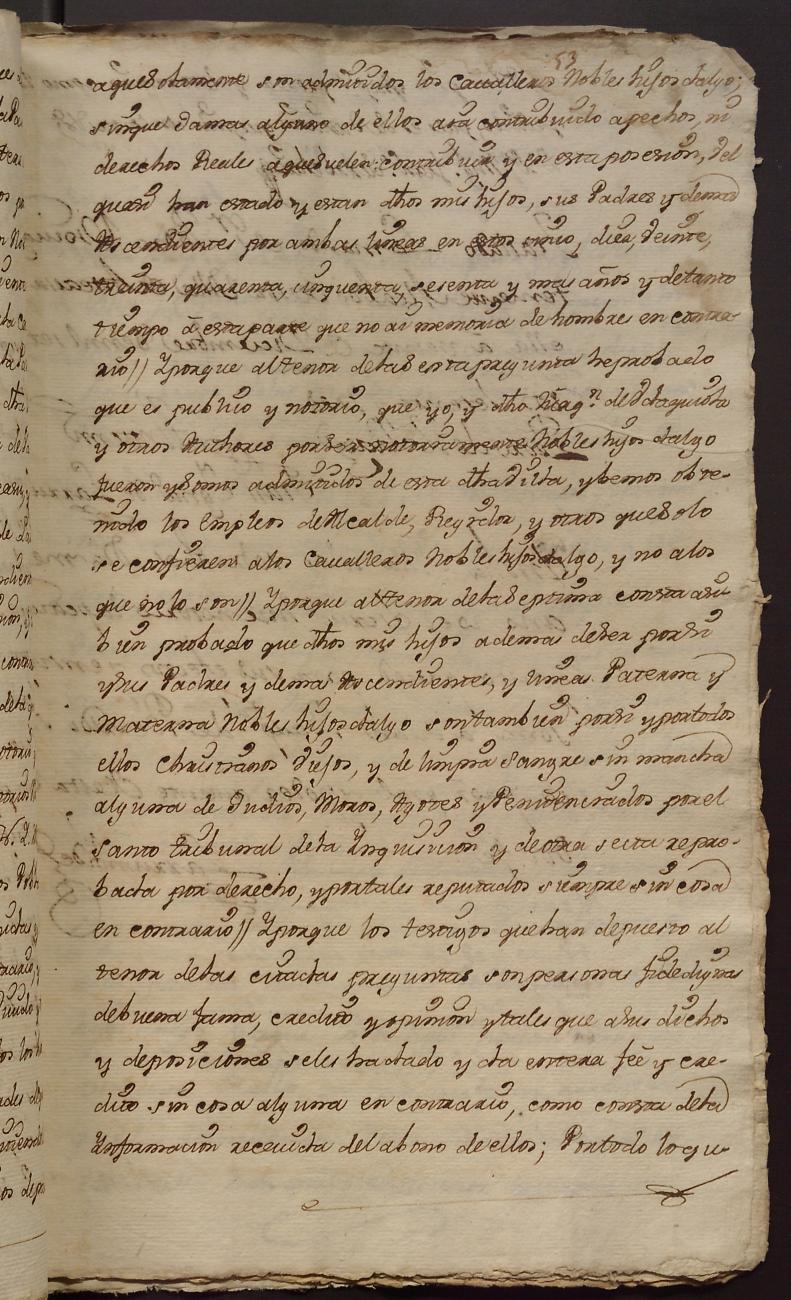 53
aque solamente son admitidos los Cavalleros Nobles hijosdalgo;
sinque Jamas alguno de ellos aia contribuido apechos, ni
derechos Reales aque suelen contribuir y en esta posesion, Vel
quasi han estado y estan dhos mis hijos, sus Padres y demas
Ascendientes por ambas lineas en estos cinco, diez, Veinte,
treinta, quarenta, cinquenta, sesenta y mas años y detanto
tiempo á estaparte que no ai memoria de hombres en contra-
rio // Yporque altenor dela sexta pregunta heprobado
que es publico y notorio, que yo, y dho
y otros Authores por ser notoriamente Nobles hijos dalgo
fueron ysomos admitidos de esta dha Villa, yhemos obte-
nido los Empleos de Alcalde, Regidor, y otros que solo
se confieren alos Cavalleros Nobles hijosdalgo, y no alos
que no lo son // Yporque altenor dela septima consta asi
bien probado que dhos mis hijos ademas deser por si
ysus Padres y demas Ascendientes, y lineas Paterna y
Materna Nobles hijosdalgo son tambien por si yportodos
ellos Christianos Viejos, y de limpia sangre sin mancha
alguna de Judios, Moros, Agotes y Penitenciados por el
santo tribunal dela Ynquisicion y deotra secta repro-
bada por derecho, yportales reputados siempre sin cosa
en contrario // Yporque los testigos quehan depuesto al
tenor delas citadas preguntas son personas fidedignas
debuena fama, credito y opinion ytales que asus dichos
y deposiciones seles hadado y da entera feé y cre-
dito sin cosa alguna en contrario, como consta dela
Ynformacion recevida del abono de ellos; Portodo loqu-